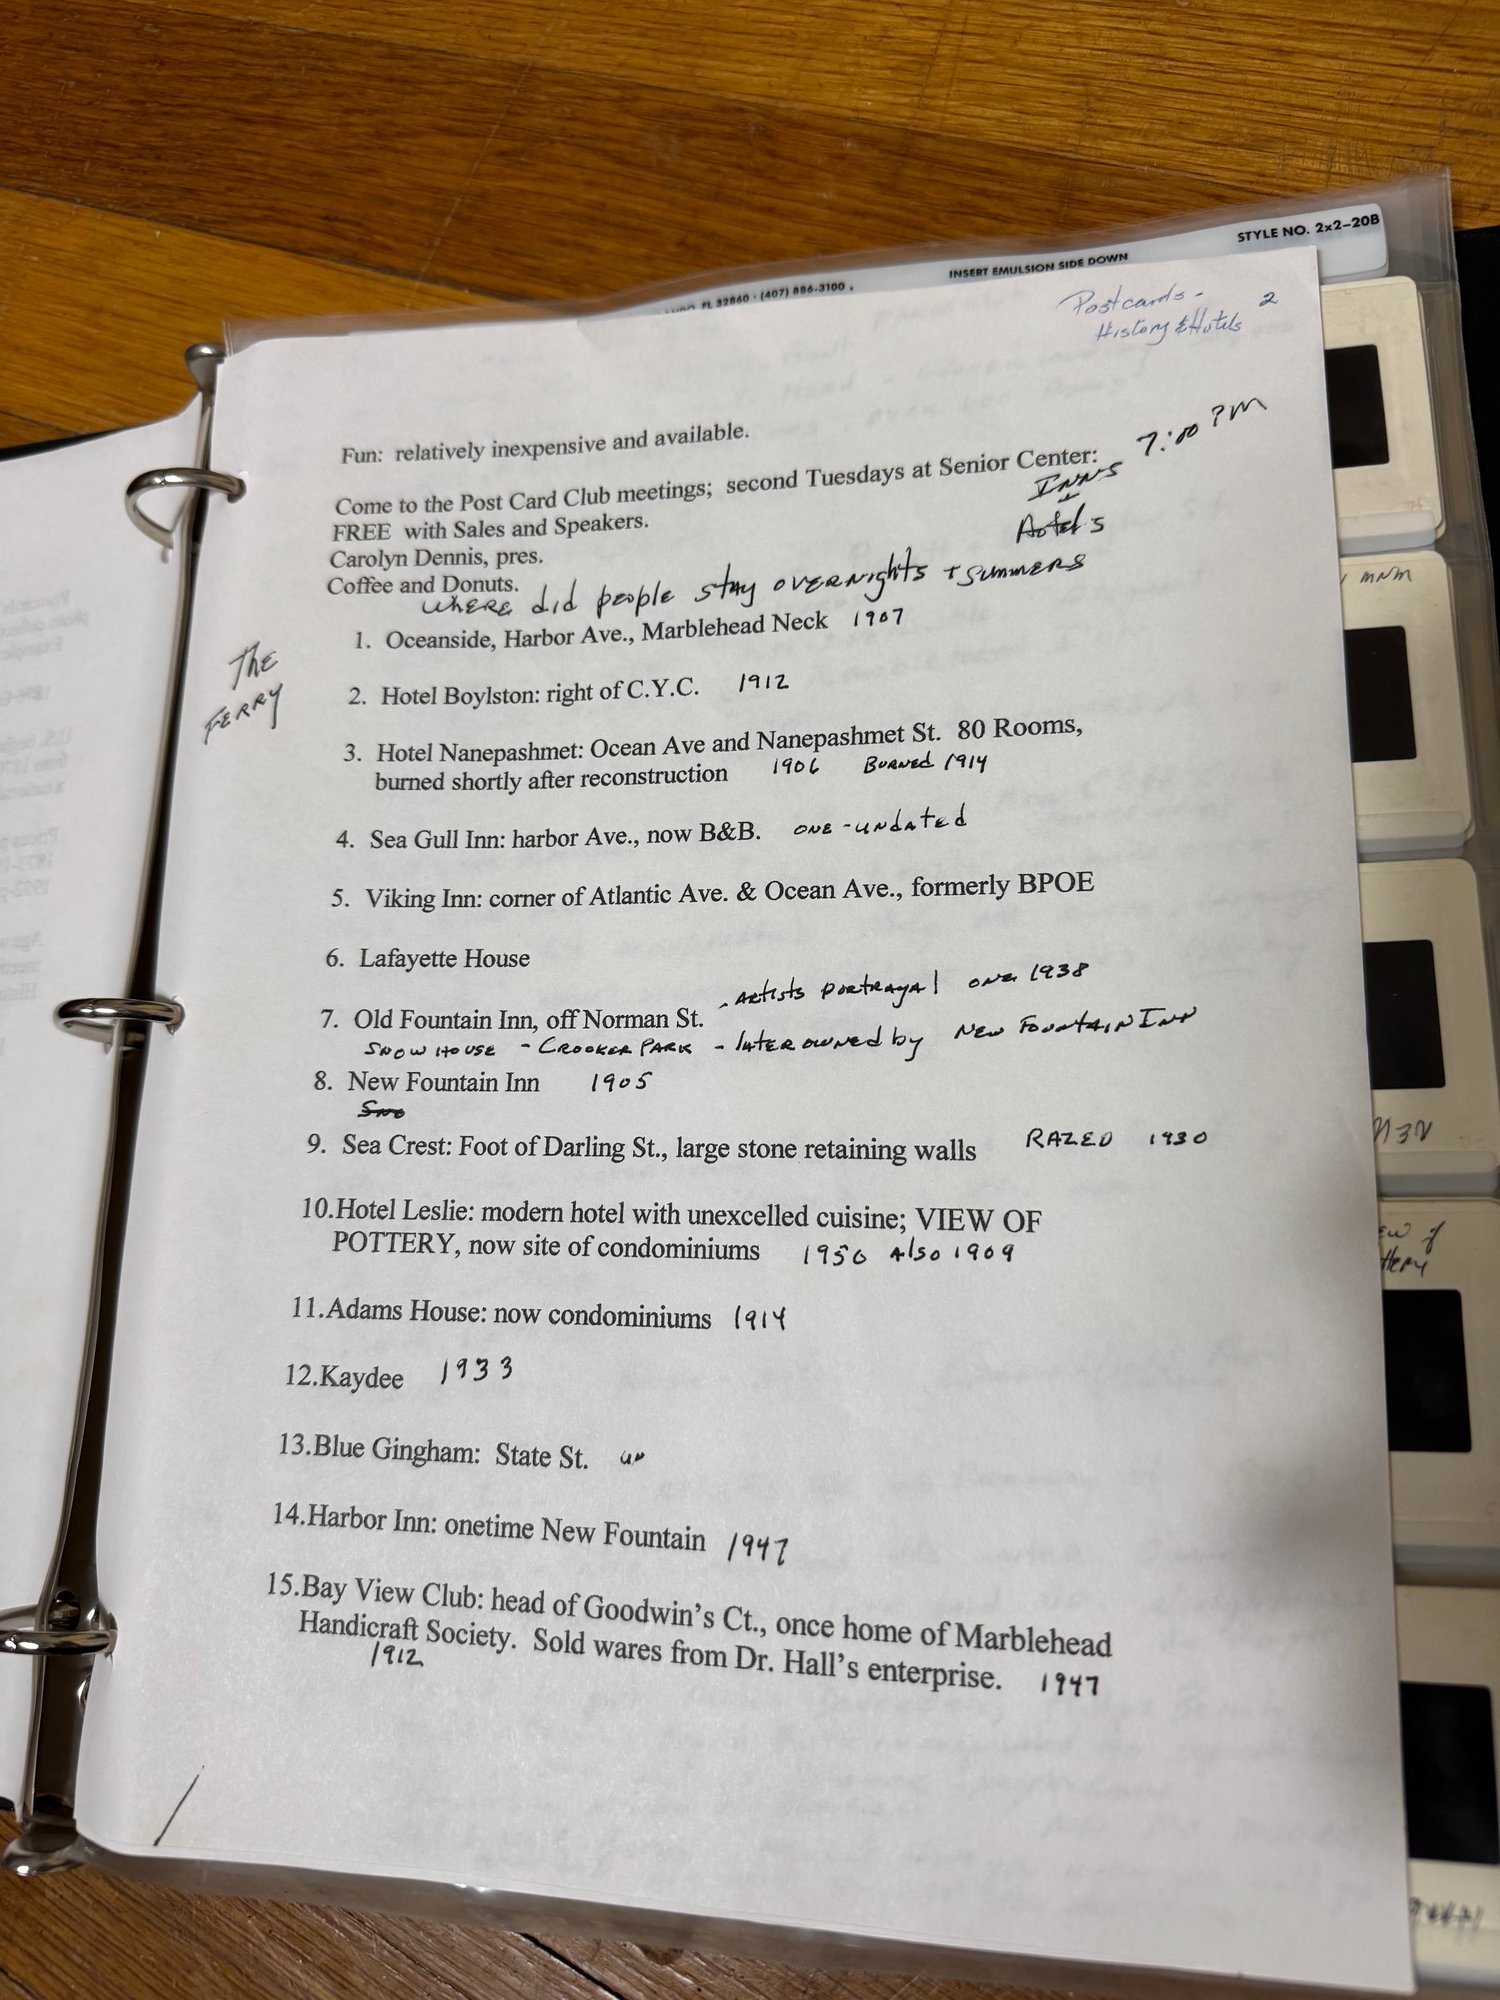 STYLE NO. 2x2-20B
INSERT EMULSION SIDE DOWN
FL 32860 · (407) 886-3100
Postcards - 2
History & Hotels
Fun: relatively inexpensive and available.
7:00 PM
Come to the Post Card Club meetings; second Tuesdays at Senior Center:
INNS
FREE with Sales and Speakers.
Hotels
Carolyn Dennis, pres.
Coffee and Donuts.
WHERE did people stay OVERNIGHTS + SUMMERS
1. Oceanside, Harbor Ave., Marblehead Neck 1907
The
FERRY
2. Hotel Boylston: right of C.Y.C. 1912
3. Hotel Nanepashmet: Ocean Ave and Nanepashmet St. 80 Rooms,
burned shortly after reconstruction 1906 BURNEd 1914
4. Sea Gull Inn: harbor Ave., now B&B. ONE - UNdATEd
5. Viking Inn: corner of Atlantic Ave. & Ocean Ave., formerly BPOE
6. Lafayette House
7. Old Fountain Inn, off Norman St. - ARtists PORTRAYAl ONE 1938
SNOW HOUSE - CROOKER PARK - lATER OWNEd by NEW FOUNTAIN INN
8. New Fountain Inn 1905
Sno
9. Sea Crest: Foot of Darling St., large stone retaining walls RAZED 1930
10.Hotel Leslie: modern hotel with unexcelled cuisine; VIEW OF
POTTERY, now site of condominiums 1950 Also 1909
11.Adams House: now condominiums 1914
12.Kaydee 1933
13.Blue Gingham: State St. UN
14.Harbor Inn: onetime New Fountain 1947
15.Bay View Club: head of Goodwin's Ct., once home of Marblehead
Handicraft Society. Sold wares from Dr. Hall's enterprise. 1947
1912
MNM